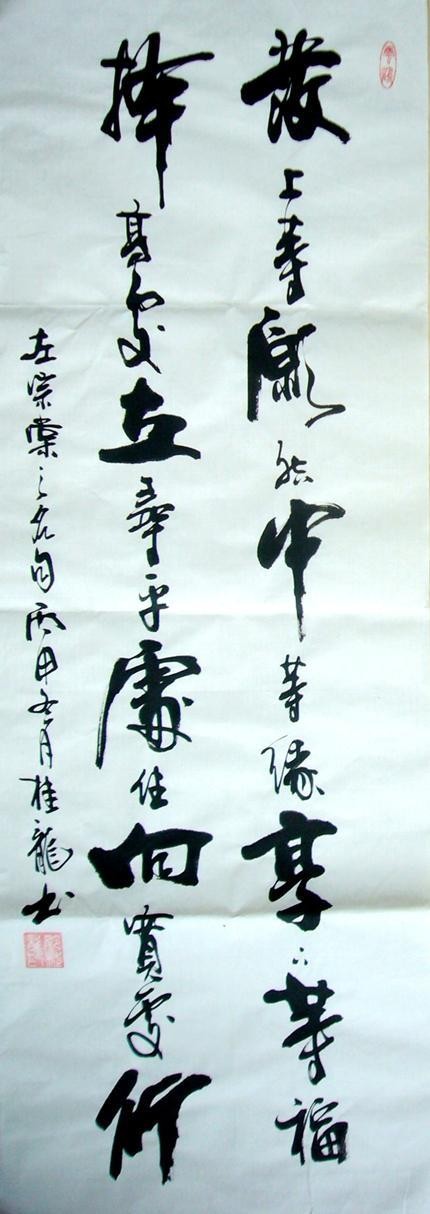 發上等願結中等緣享下等福
擇高處立尋平處住向寬處行
左宗棠之名句丙申冬月桂龍书